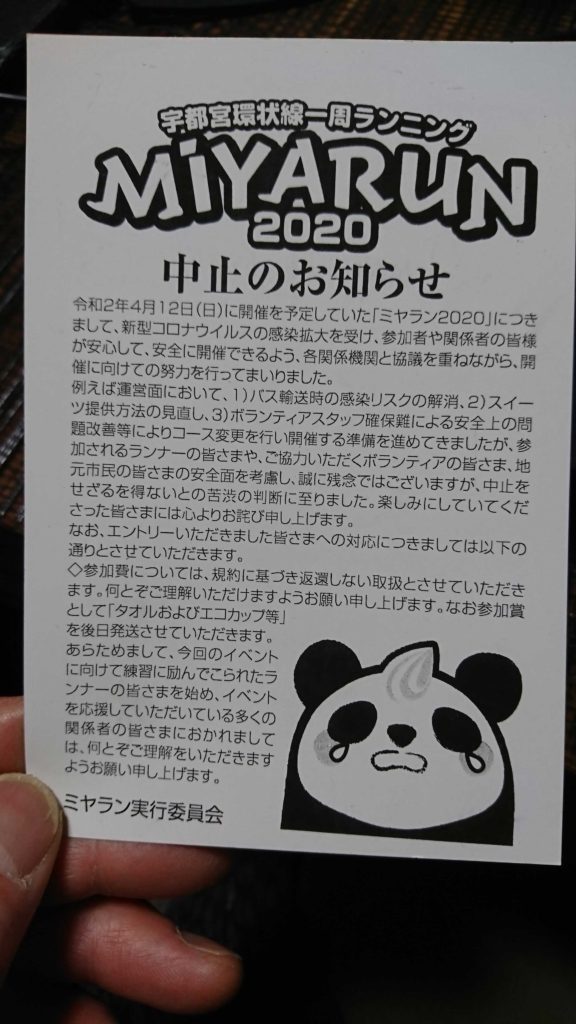 宇都宮環状線一周ランニング
MiYARUN
2020
中止のお知らせ
令和2年4月12日(日)に開催を予定していた「ミヤラン2020」につき
まして、新型コロナウイルスの感染拡大を受け、参加者や関係者の皆様
が安心して、安全に開催できるよう、各関係機関と協議を重ねながら、開
催に向けての努力を行ってまいりました。
例えば運営面において、1)バス輸送時の感染リスクの解消、2)スイー
ツ提供方法の見直し、3)ボランティアスタッフ確保難による安全上の問
題改善等によりコース変更を行い開催する準備を進めてきましたが、参
加されるランナーの皆さまや、ご協力いただくボランティアの皆さま、地
元市民の皆さまの安全面を考慮し、誠に残念ではございますが、中止を
せざるを得ないとの苦渋の判断に至りました。楽しみにしていてくだ
さった皆さまには心よりお詫び申し上げます。
なお、エントリーいただきました皆さまへの対応につきましては以下の
通りとさせていただきます。
◇参加費については、規約に基づき返還しない取扱とさせていただき
ます。何とぞご理解いただけますようお願い申し上げます。なお参加賞
として「タオルおよびエコカップ等」
を後日発送させていただきます。
あらためまして、今回のイベント
に向けて練習に励んでこられたラ
ンナーの皆さまを始め、イベント
を応援していただいている多くの
関係者の皆さまにおかれまして
は、何とぞご理解をいただきます
ようお願い申し上げます。
ミヤラン実行委員会